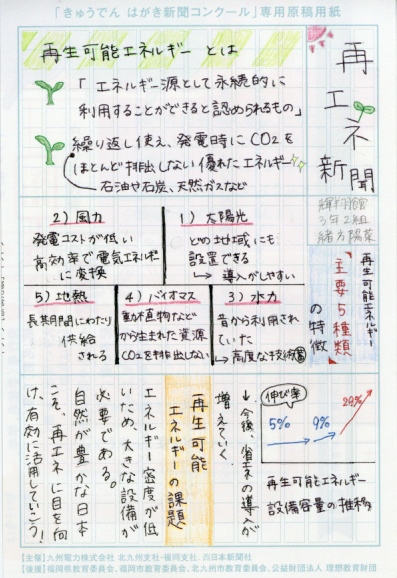 「きゅうでん はがき新聞コンクール」専用原稿用紙
再エネ新聞
3年2組
緒方陽菜
再生可能エネルギー とは
「エネルギー源として永続的に
利用することができると認められるもの」
繰り返し使え、発電時にCO2を
ほとんど排出しない優れたエネルギー
石油や石炭、天然ガスなど
再生可能エネルギー
主要5種類
の特徴
1) 太陽光
どの地域にも
設置できる
→ 導入がしやすい
2) 風力
発電コストが低い
高効率で電気エネルギー
に変換
3) 水力
昔から利用され
ていた
→ 高度な技術
4) バイオマス
動植物など
から生まれた資源
CO2を排出しない
5) 地熱
長期期間にわたり
供給
される
伸び率
5%
9%
29%
再生可能エネルギー
設備容量の推移
↓今後、省エネの導入が
増えていく。
再生可能
エネルギーの課題
エネルギー密度が低
いため、大きな設備が
必要である。
自然が豊かな日本
こそ、再エネに目を向
け、有効に活用していこう！
【主催】九州電力株式会社 北九州支社・福岡支社、西日本新聞社
【後援】福岡県教育委員会、福岡市教育委員会、北九州市教育委員会、公益財団法人 理想教育財団